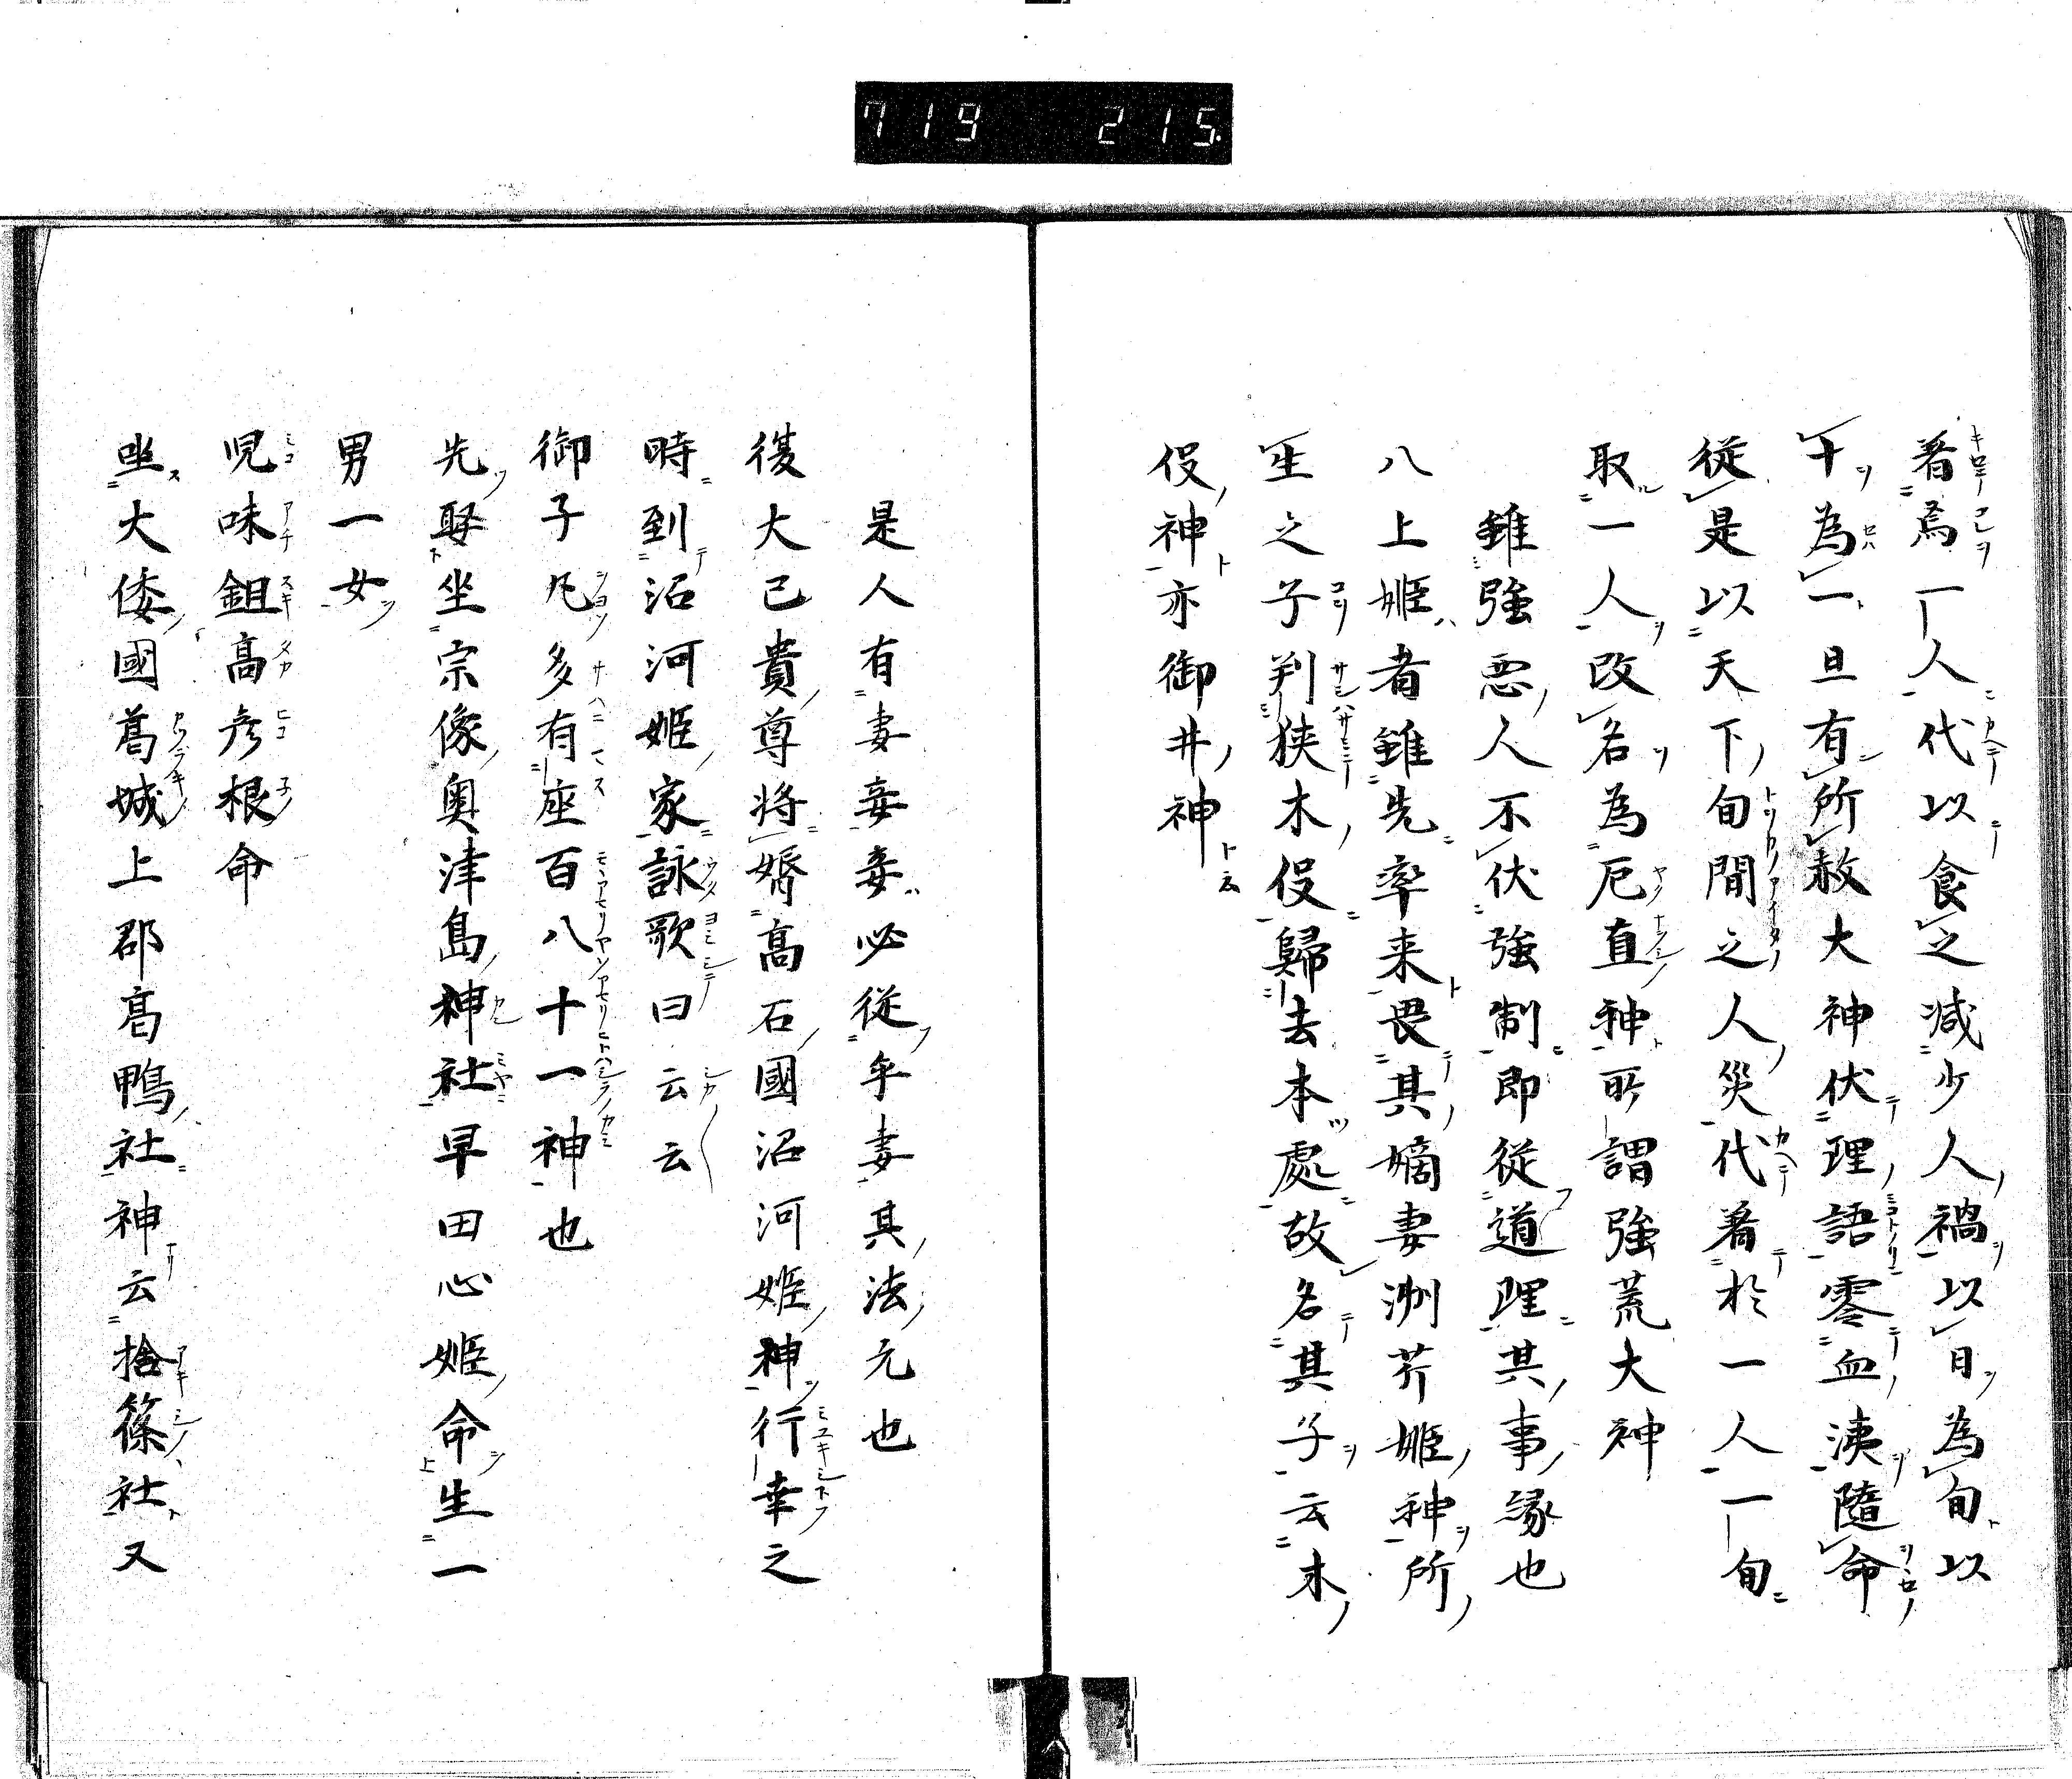 719 215.
着焉一人代以食之減少人禍以日為旬以
十為一旦有所赦大神伏理語零血洟随命
従是以天下旬間之人災代着於一人一旬
取一人改名為厄直神所謂強荒大神
雖強悪人不伏強制即従道理其事縁也
八上姫者雖先率来畏其嫡妻洲芥姫神所
生之子判狭木俣歸去本處故名其子云木
俣神亦御井神
是人有妻妾妾必従乎妻其法元也
後大己貴尊将婚高石國沼河姫神行幸之
時到沼河姫家詠歌曰云云
御子凡多有座百八十一神也
先娶坐宗像奥津島神社早田心姫命生一
男一女
児味鉏高彦根命
坐大倭國葛城上郡高鴨社神云捨篠社又